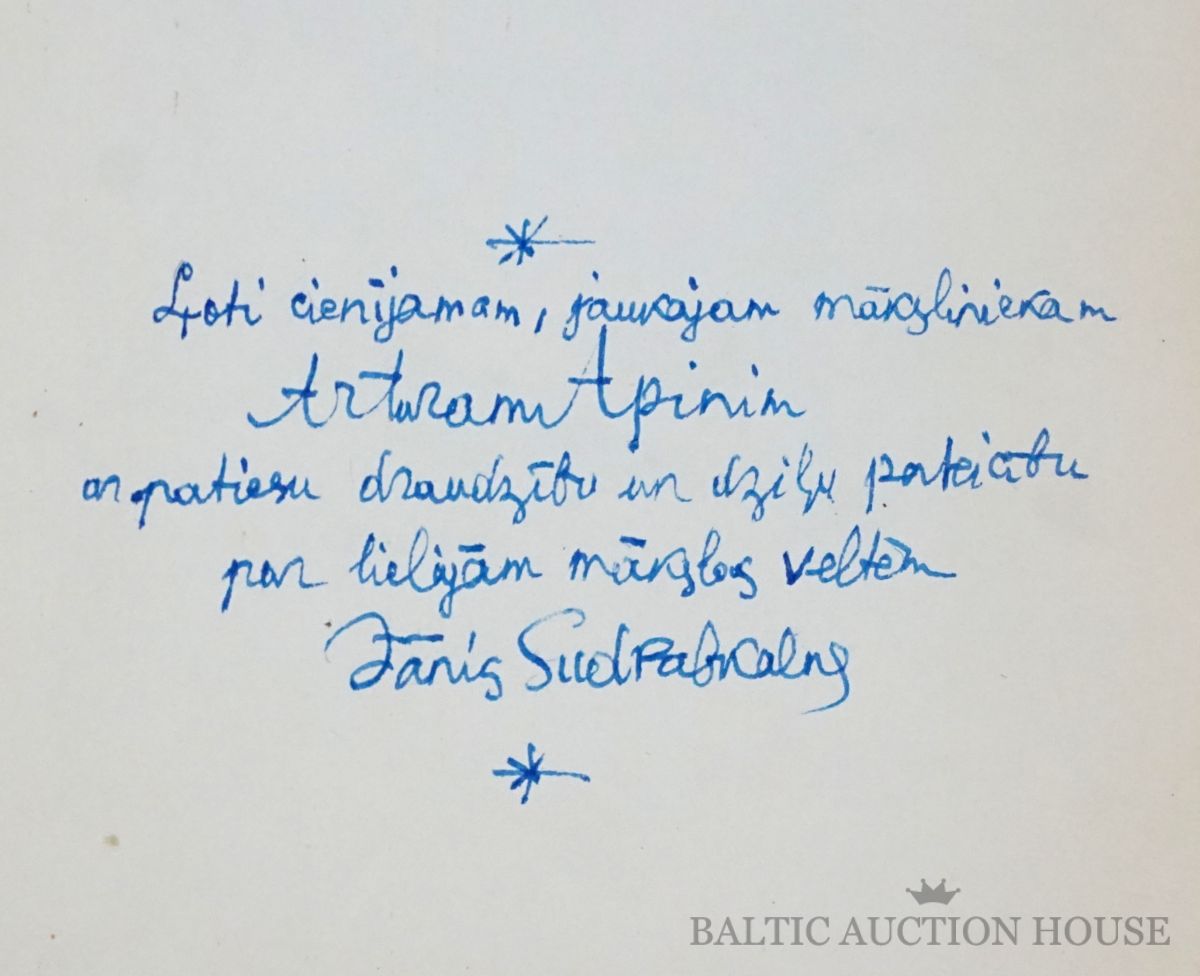 *
Ļoti cienījamam, jaukajam māksliniekam
Arturam Apinim
ar patiesu draudzību un dziļu pateicību
par lielajām mākslas veltēm
Jānis Sudrabkalns
*
BALTIC AUCTION HOUSE